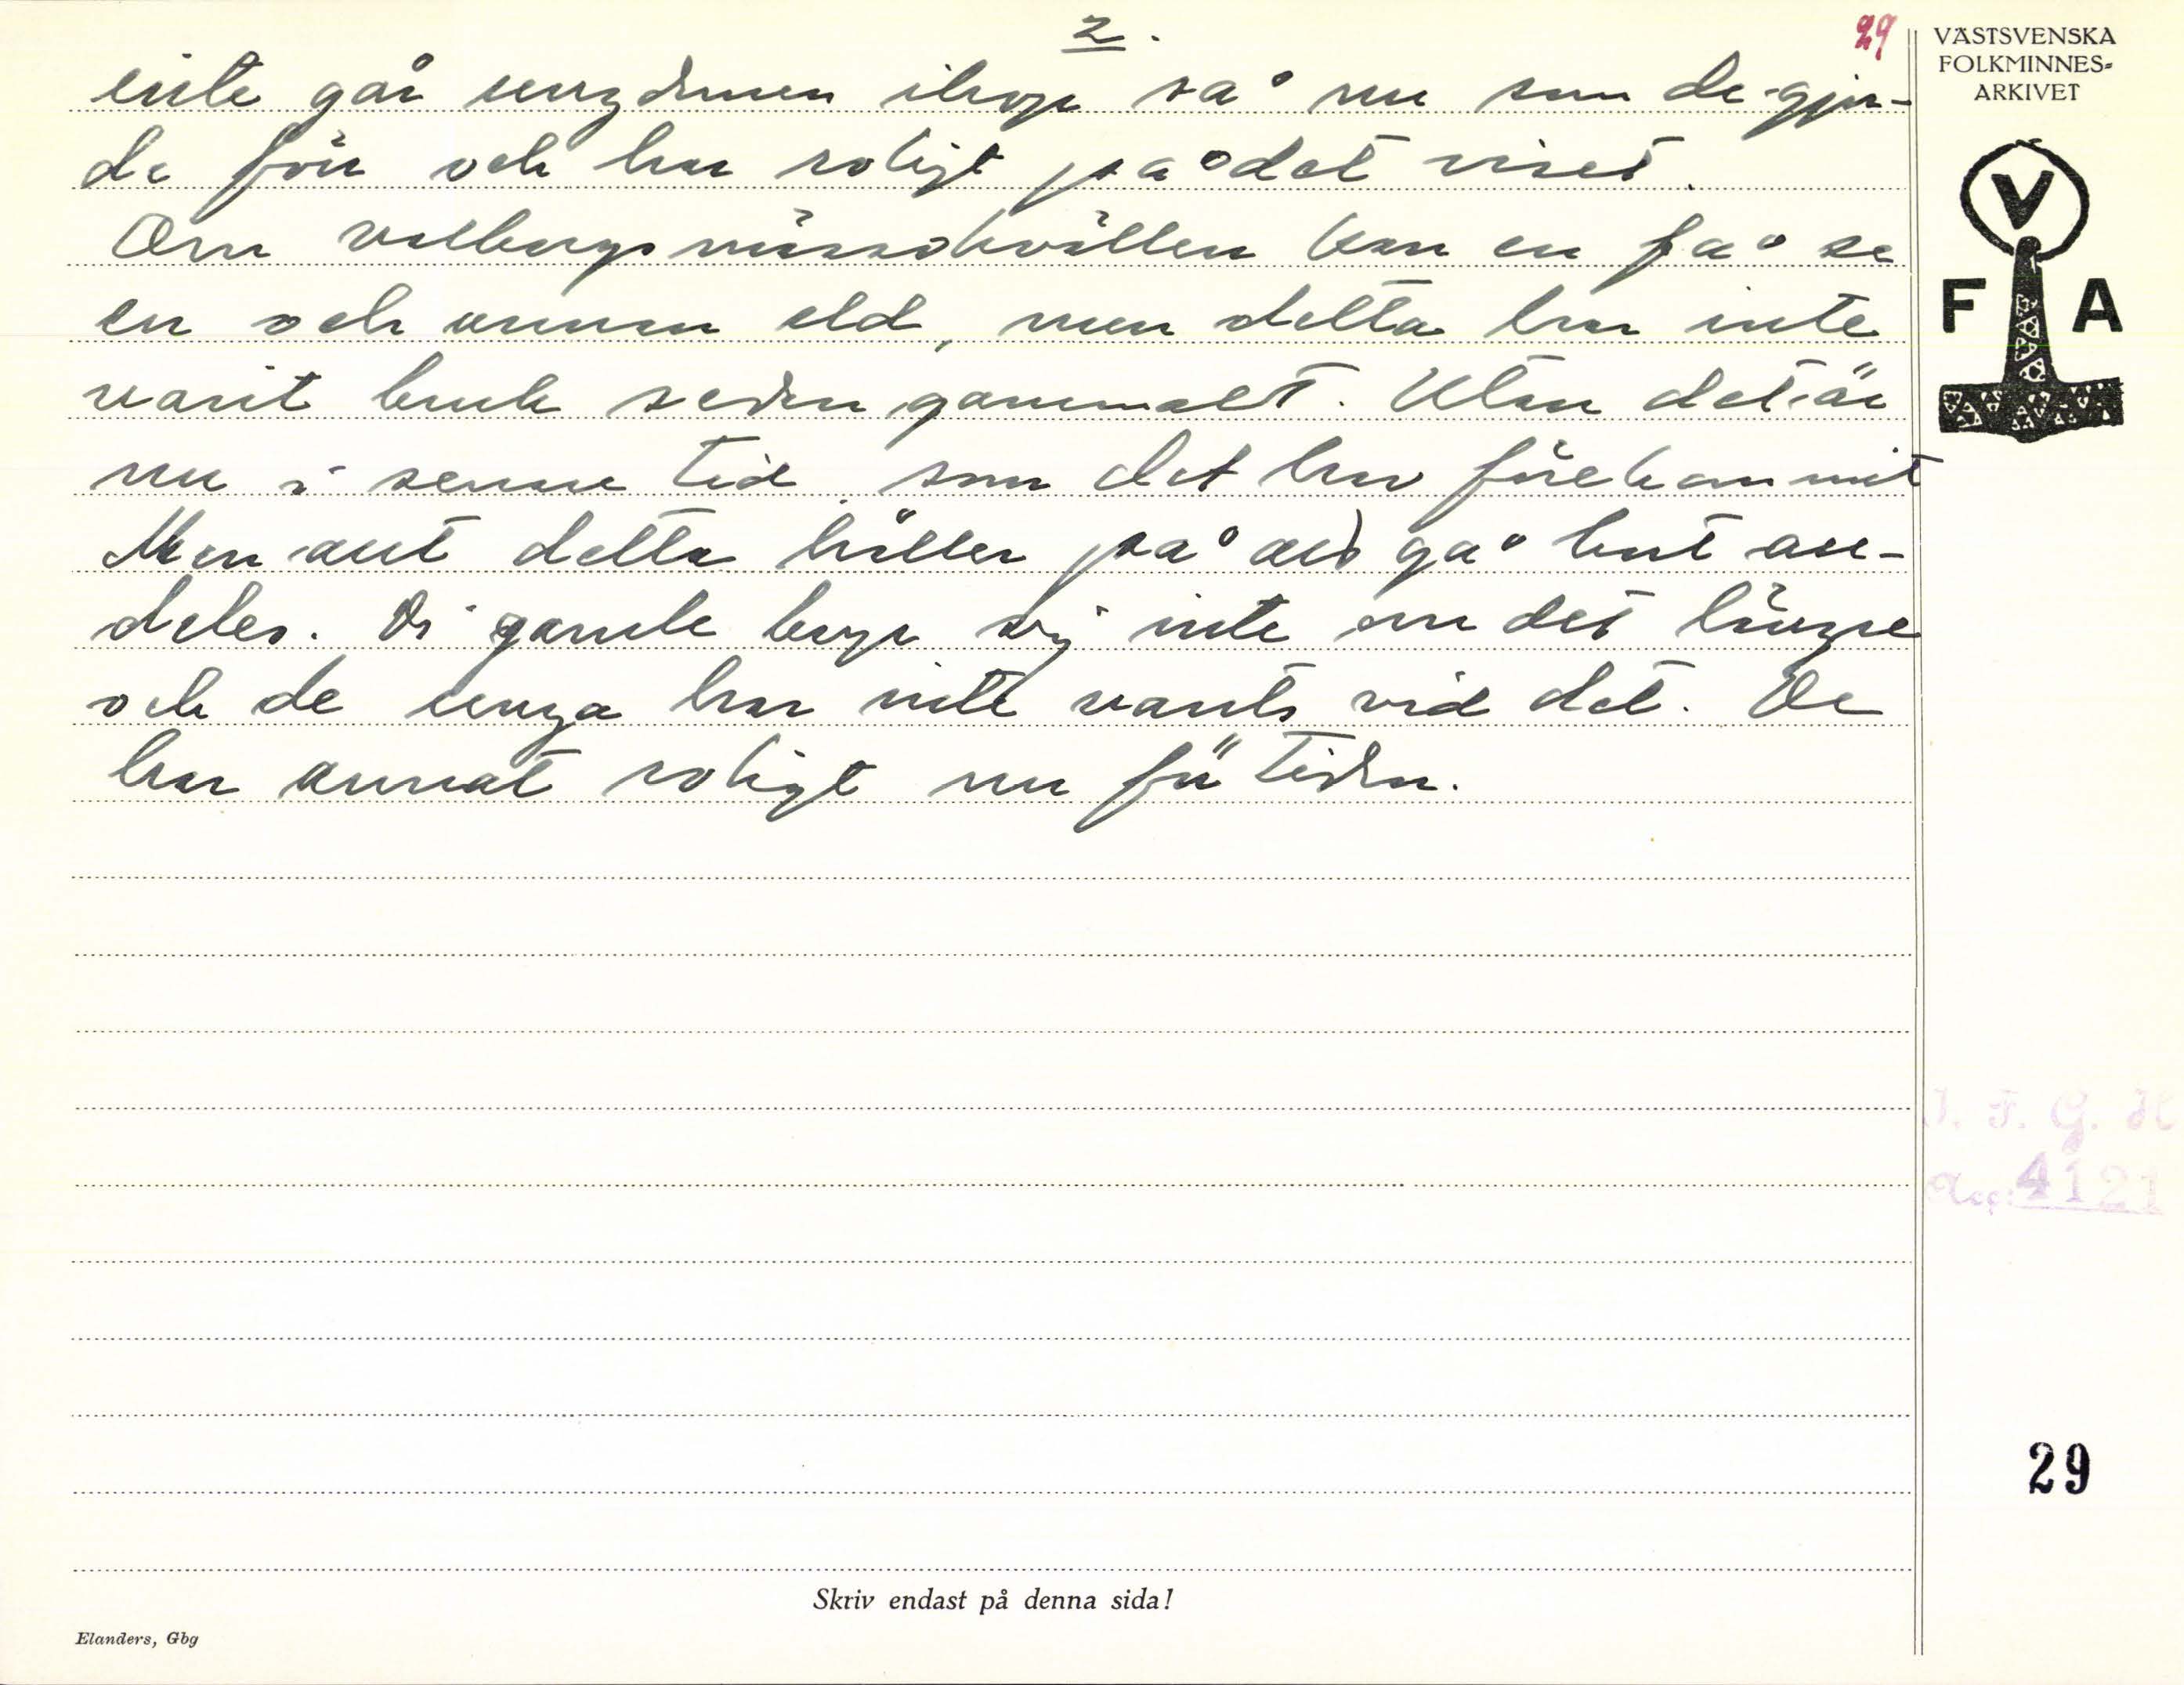 2.
29
inte går ungdomen ihop så nu som de gjor-
de förr och har roligt på det viset.
Om valborgsmässokvällen kan en få se
en och annan eld, men detta har inte
varit bruk sedan gammalt. Utan det är
nu i senare tid som det har förekommit
Men allt detta håller på att gå bort all-
deles. Vi gamle bryr oss inte om det längre
och de unga har inte vants vid det. De
har annat roligt nu för tiden.
VÄSTSVENSKA
FOLKMINNES-
ARKIVET
V
F A
I. F. G. H
Acc: 4121
29
Skriv endast på denna sida!
Elanders, Gbg